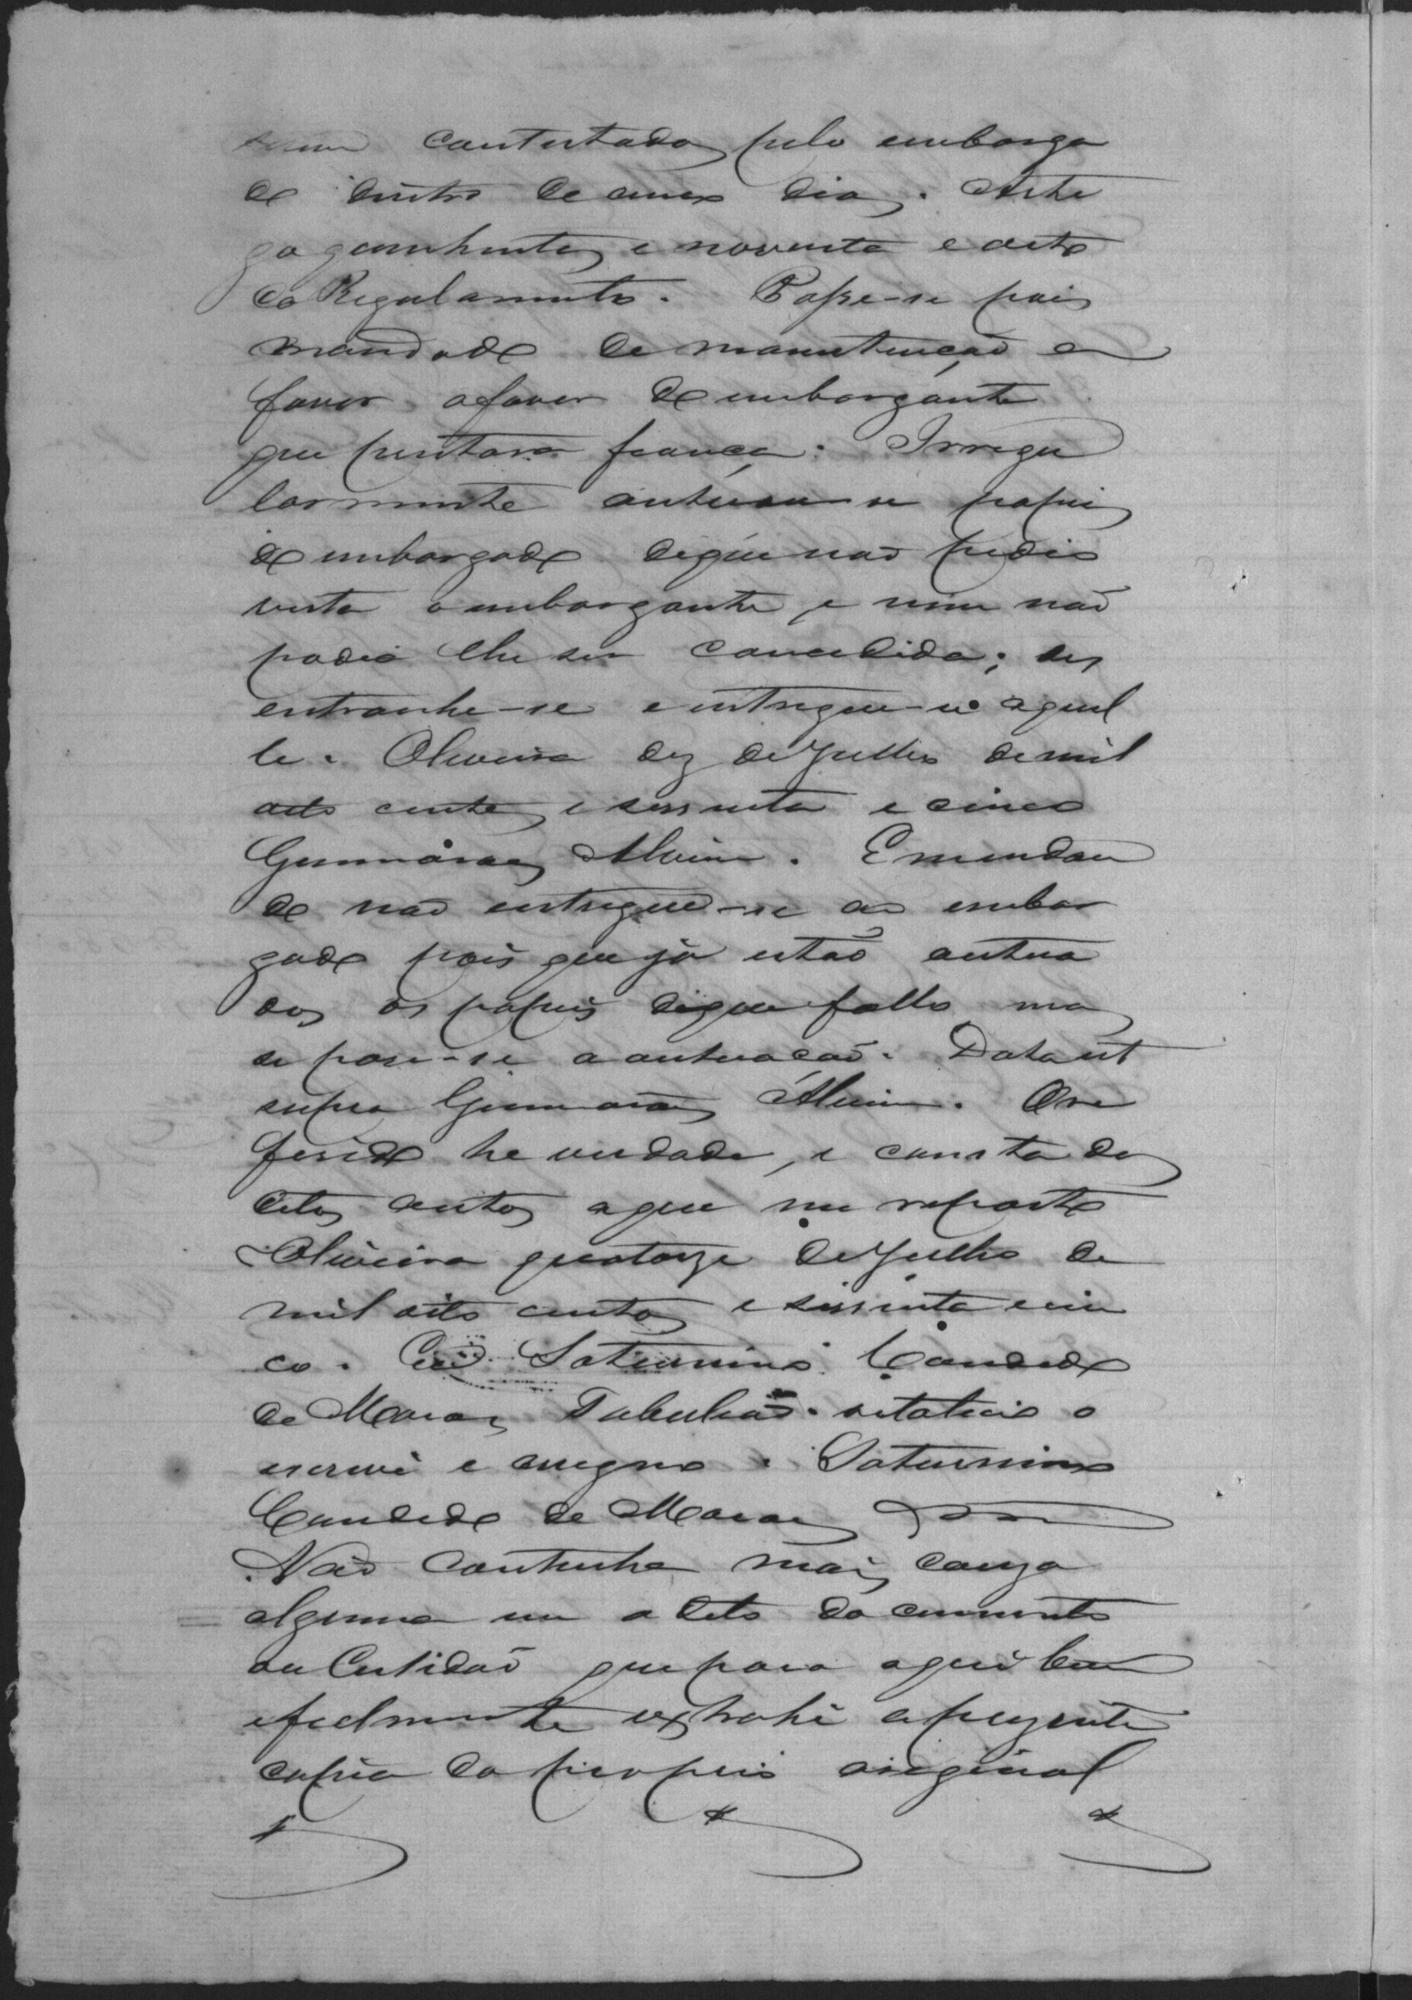 contestados pelo embarga
do dentro de cinco dias. Arti
go quinhentos e noventa e oito
do Regulamento. Passe-se pois
mandado de manutenção em
favor a favor do embargante
que prestara fiança. Irregu
larmente autuarão se papeis
do embargado de que não pedio
vista o embargante, e nem não
podia lhe ser concedida; des
entranhe-se e entregue-se aquel
le. Oliveira dez de Julho de mil
oito centos e sessenta e cinco
Guimarães Alvim. Emendan
do não entregue-se ao embar
gado pois que já estão autua
dos os papeis de que fallo mas
separe-se a autuação. Data ut
supra Guimarães Alvim. O re
ferido he verdade, e consta dos
ditos autos a que me reporto
Oliveira quatorze de Julho de
mil oito centos e sessenta e cin
co. Eu Saturnino Candido
de Moraes Tabelião vitalicio o
escrevi e assigno. Saturnino
Candido de Moraes
Não continha mais couza
alguma em o dito documento
ou Certidão que para aqui bem
e fielmente extrahi a prezente
copia do proprio original